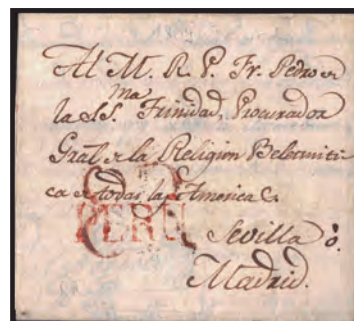 Al M. R. P. Fr. Pedro de
la SSma. Trinidad, Procurador
Gral de la Religion Belermiti-
ca de todas las Americas
PERU
Sevilla o.
Madrid.